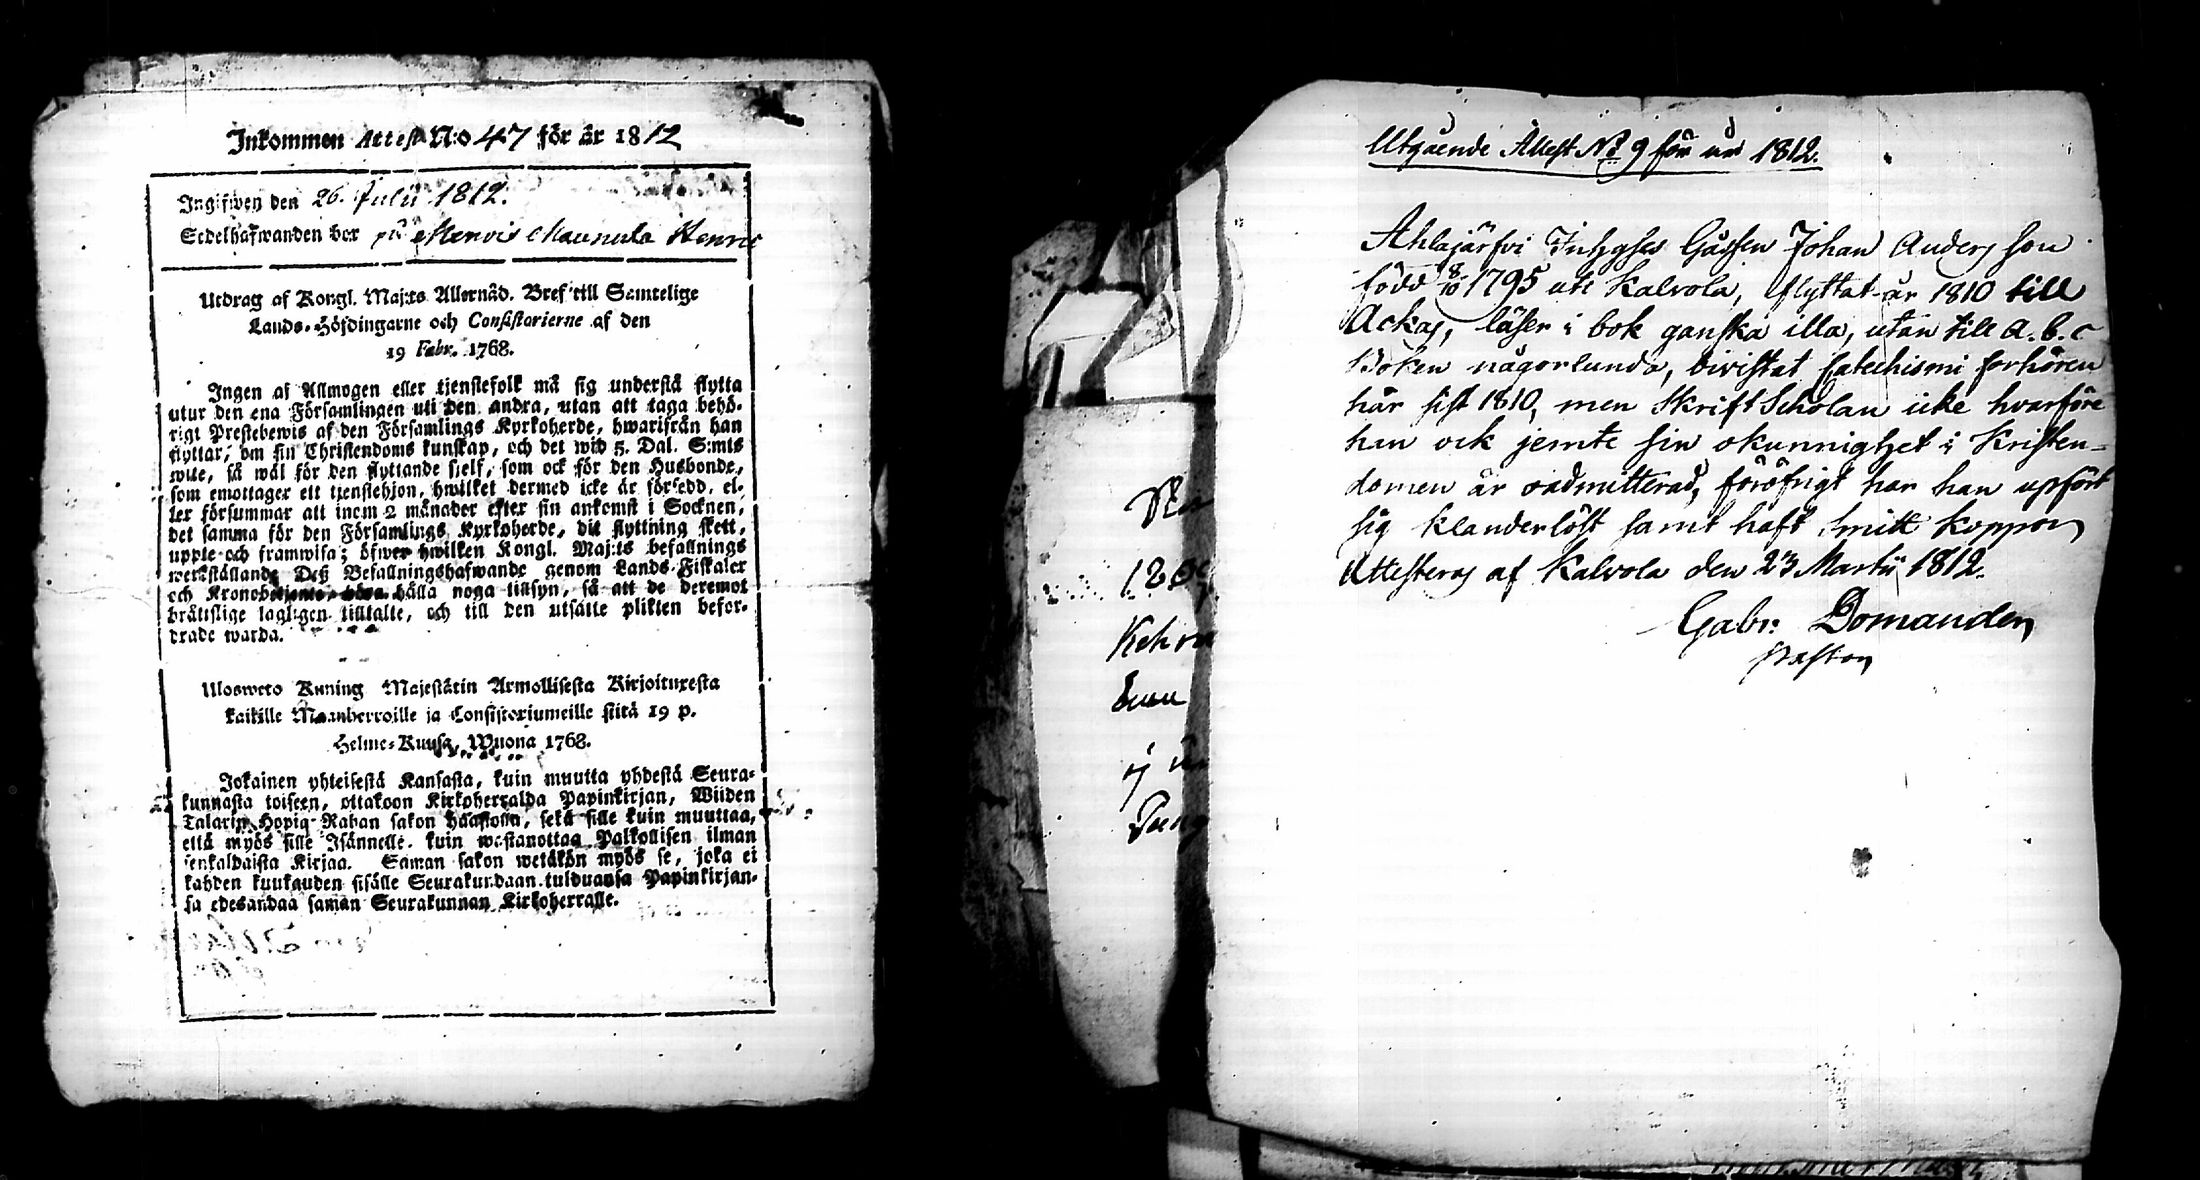 Inkommen Attest N:o 47 för år 1812
Ingifwen den 26. Julii 1812.
Sedelhafwanden bor på Mervis Maunula Henric
Utdrag af Kongl. Maj:ts Allernåd. Bref till Samtelige
Lands-Höfdingarne och Consistorierne af den
19 Febr. 1768.
Ingen af Allmogen eller tjenstefolk må sig understå flytta
utur den ena Församlingen uti den andra, utan att taga behö-
rigt Prestebewis af den Församlings Kyrkoherde, hwarifrån han
flyttar, om sin Christendoms kunskap, och det wid 5. Dal. S:mts
wite, så wäl för den flyttande sielf, som ock för den Husbonde,
som emottager ett tjenstehjon, hwilket dermed icke är försedd, el-
ler försummar att inom 2 månader efter sin ankomst i Socknen,
det samma för den Församlings Kyrkoherde, dit flyttning skett,
uppte och framwisa; öfwer hwilken Kongl. Maj:ts befallnings
werkställande Deß Befallningshafwande genom Lands-Fiskaler
och Kronobetjente, böra hålla noga tillsyn, så att de deremot
bråtslige lagligen tilltalte, och till den utsatte plikten befor-
drade warda.
Ulosweto Kuning Majestätin Armollisesta Kirjoituxesta
kaikille Maanherroille ja Consistoriumeille siitä 19 p.
Helme-Kuusa, Wuona 1768.
Jokainen yhteisestä Kansasta, kuin muutta yhdestä Seura-
kunnasta toiseen, ottakoon Kirkoherralda Papinkirjan, Wiiden
Talarin Hopia-Rahan sakon haastolla, sekä sille kuin muuttaa,
että myös sille Isännelle, kuin wastanottaa Palkollisen ilman
senkaldaista Kirjaa. Saman sakon wetäkön myös se, joka ei
kahden kuukauden sisälle Seurakundaan tulduansa Papinkirjan-
sa edesandaa saman Seurakunnan Kirkoherralle.
Utgående Attest No 9 för år 1812.
Ahlajärfvi Inhyses Gåssen Johan Anders son
född 8/10 1795 uti Kalvola, flyttat år 1810 till
Ackas, läser i bok ganska illa, utan till a.b.c
Boken någorlunda, bivistat Catechismi forhören
här sist 1810, men Skrift Scholan icke hvarföre
han ock jemte sin okunnighet i Kristen-
domen är oadmitterad, föröfrigt har han upfört
sig klanderlöst samt haft Smitt koppor,
Attesteras af Kalvola den 23 Martii 1812.
Gabr: Domander,
Pastor,